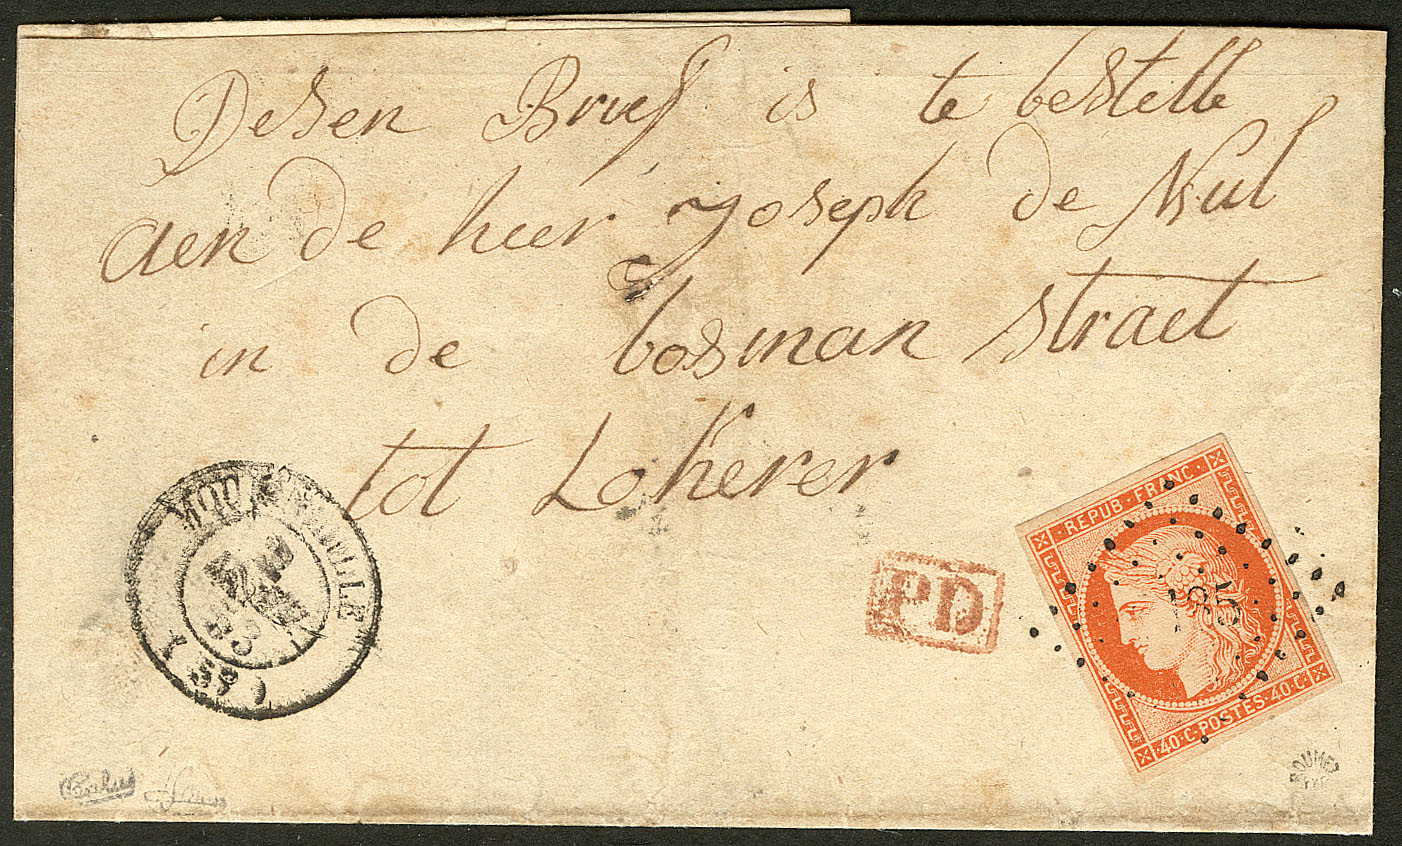 Desen Brief is te bestelle
aen de heer Joseph de Nul
in de bosman straet
tot Lokerer
PD
REPUB·FRANC·
185
40·C·POSTES·40·C·
(59)
ROUMET